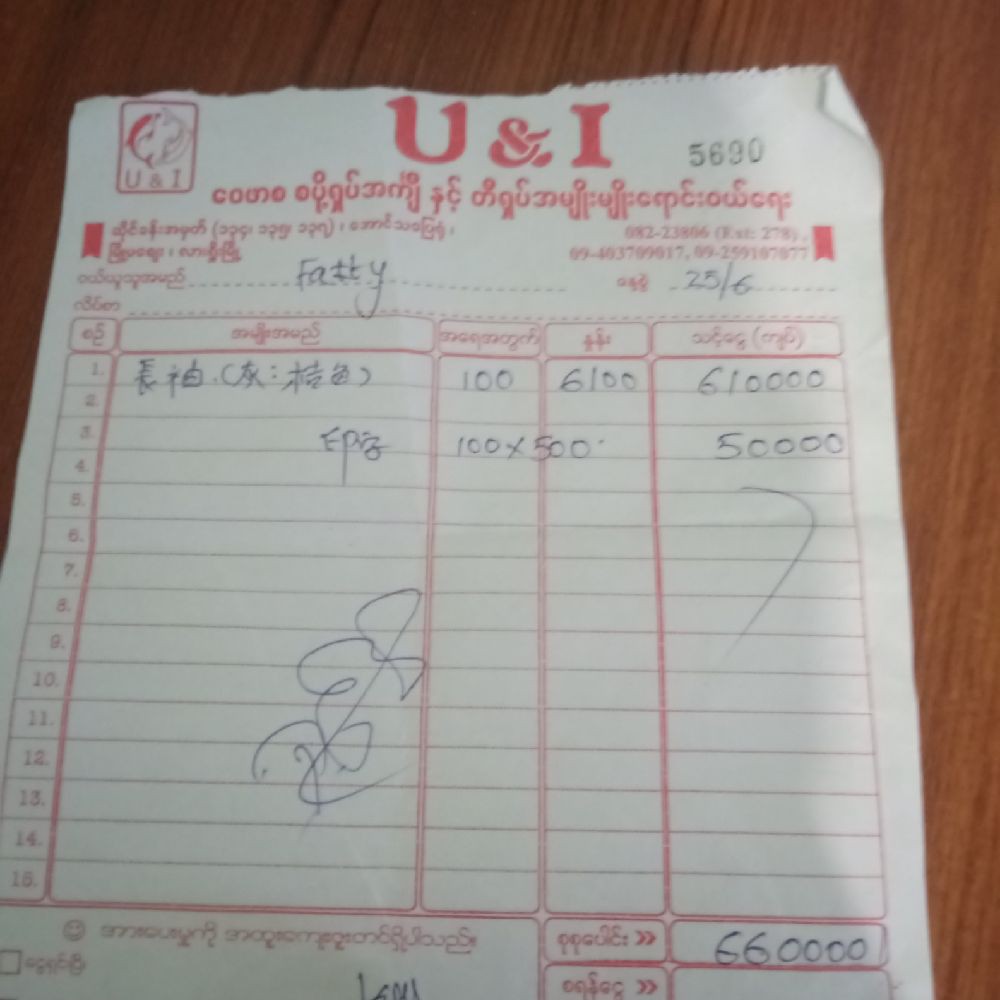 U & I
U & I
5690
ဝေဟာစ စပို့ရှပ်အင်္ကျီ နှင့် တီရှပ်အမျိုးမျိုးရောင်းဝယ်ရေး
ဆိုင်ခန်းအမှတ် (၁၃၄၊ ၁၃၅၊ ၁၃၇) ၊ အောင်သပြေရုံ ၊
082-23806 (Ext: 278) ,
မြို့မဈေး ၊ လားရှိုးမြို့
09-403709017, 09-259107077
ဝယ်ယူသူအမည် Fatty နေ့စွဲ 25/6
လိပ်စာ
စဉ် အမျိုးအမည် အရေအတွက် နှုန်း သင့်ငွေ (ကျပ်)
1. 長袖 (灰:桔色) 100 6100 610000
2.
3. EP字 100 x 500 50000
4.
5.
6.
7.
8.
9.
10.
11.
12.
13.
14.
15.
အားပေးမှုကို အထူးကျေးဇူးတင်ရှိပါသည်။ စုစုပေါင်း >> 660000
ငွေရှင်းပြီး
စရန်ငွေ >>